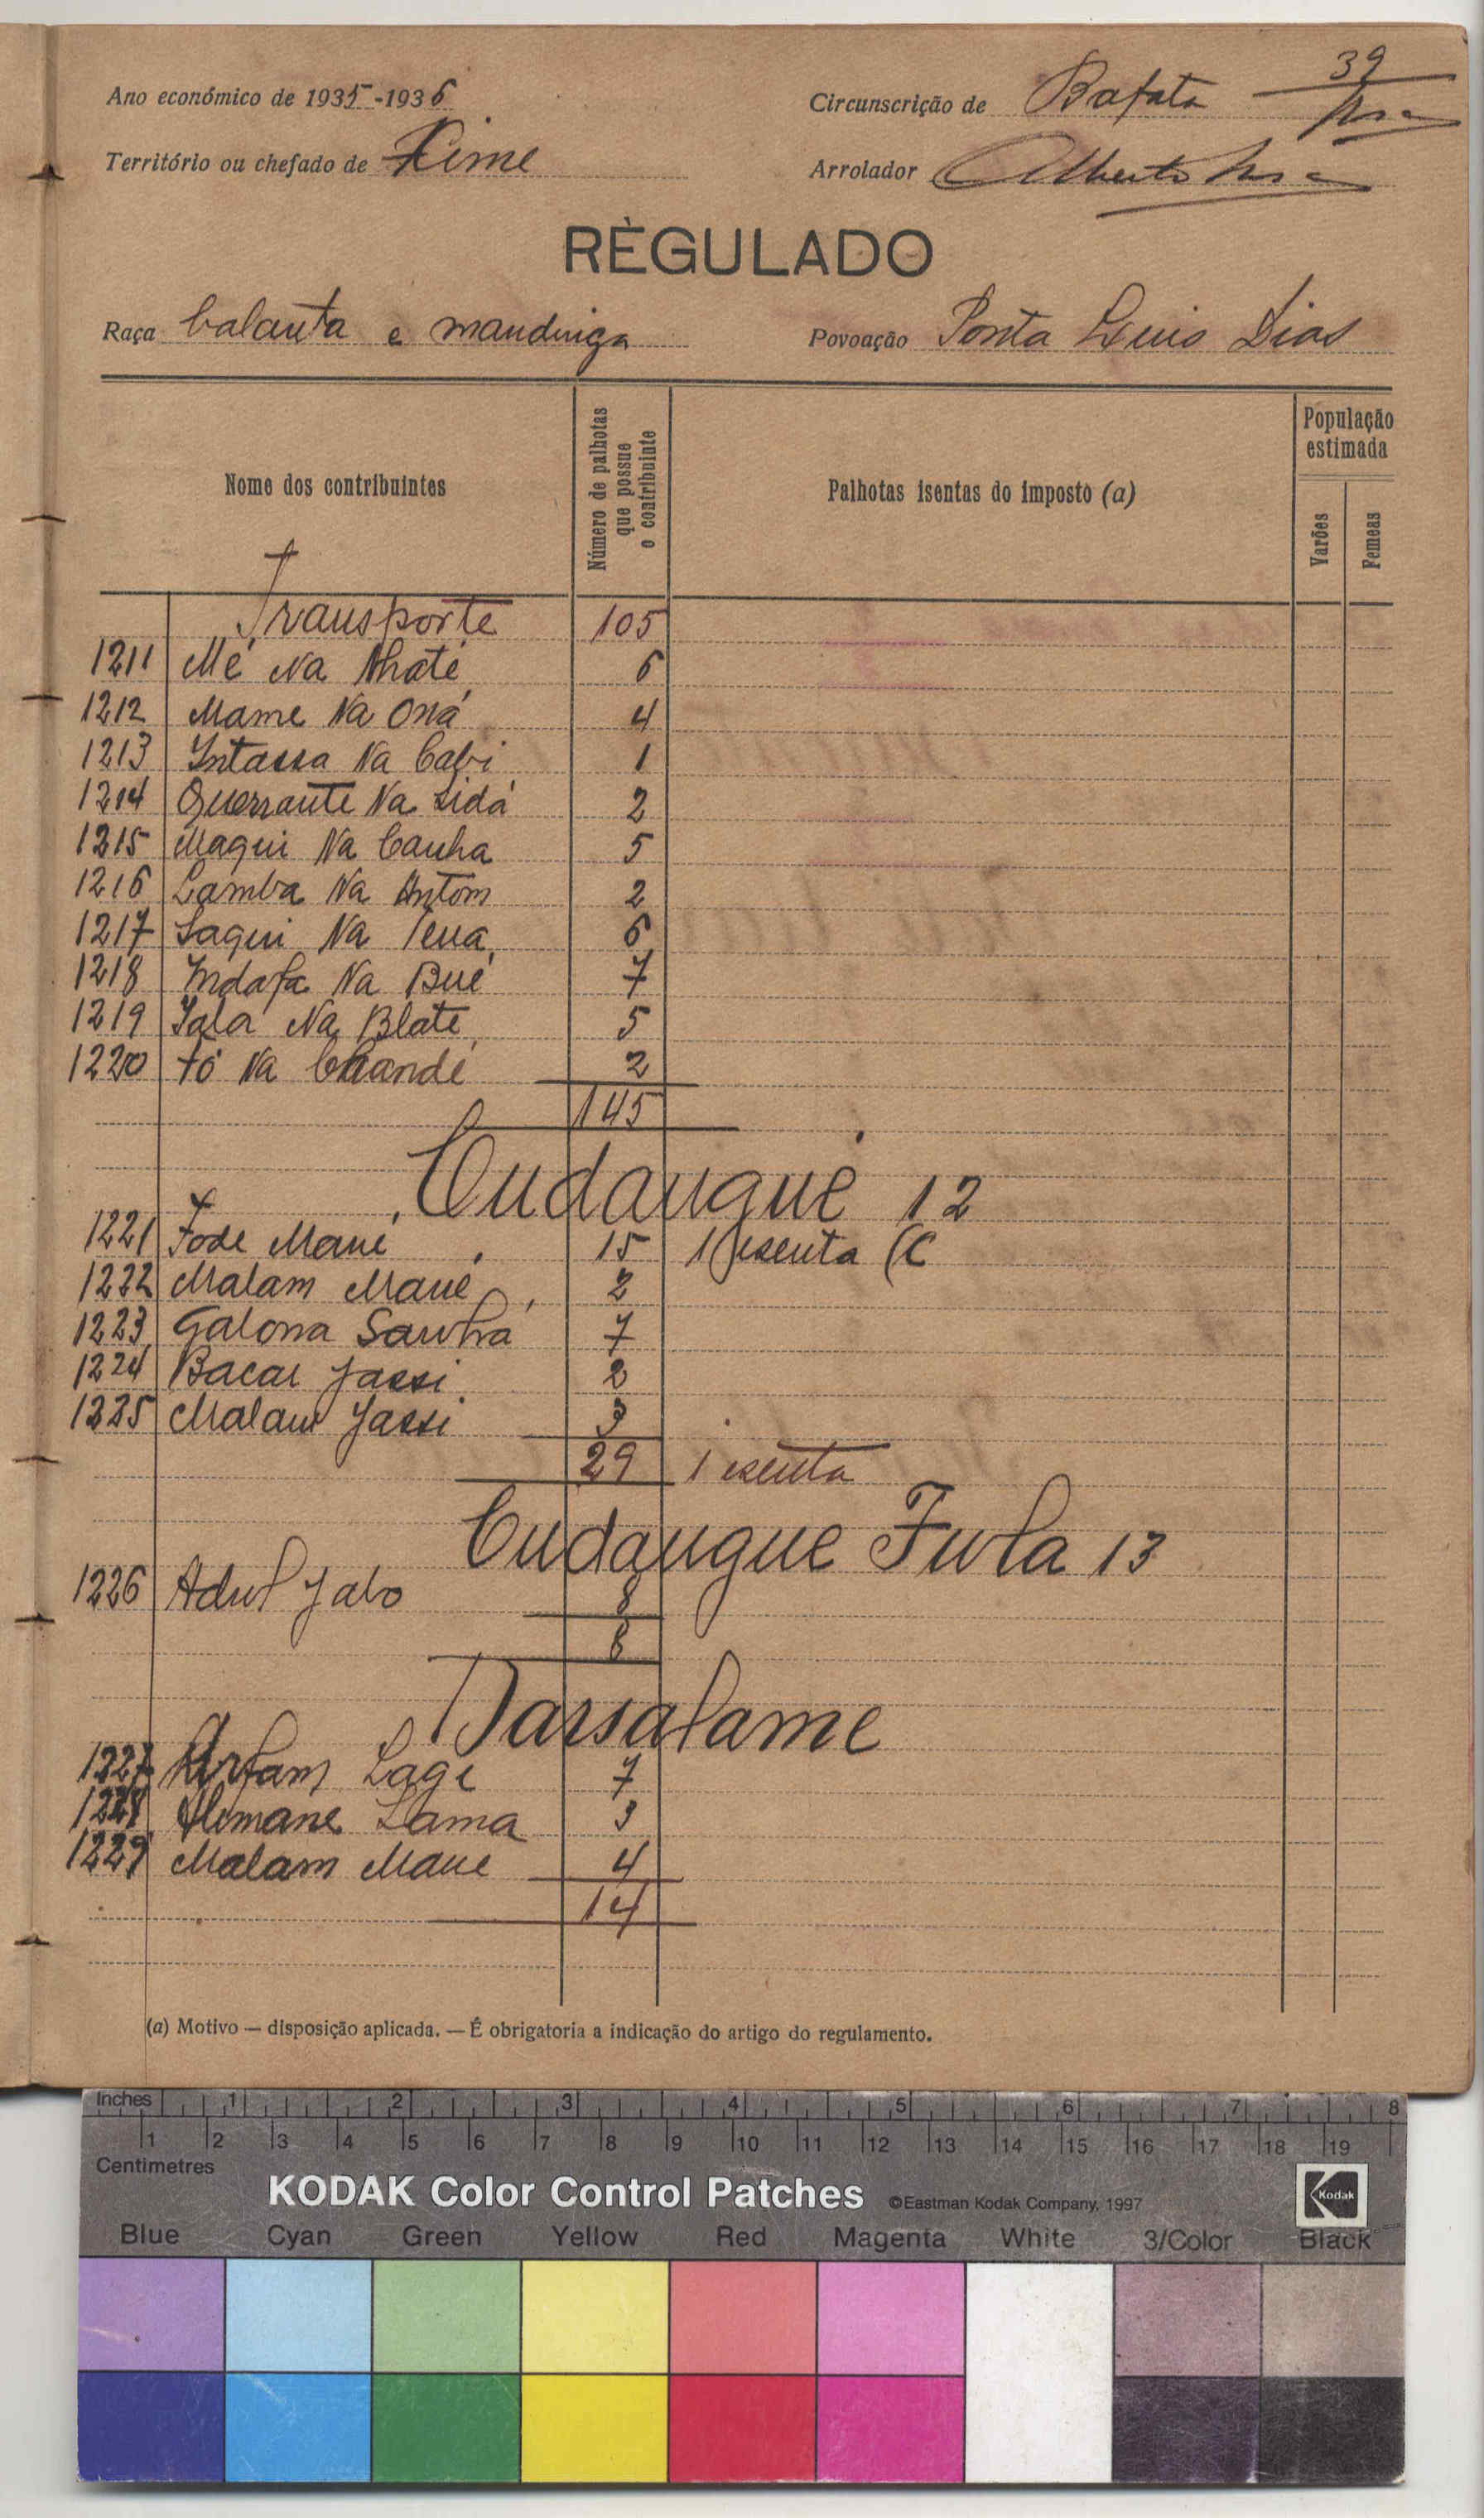 Ano económico de 1935-1936
Circunscrição de Bafata 39
Território ou chefado de Xime
Arrolador Alberto
RÈGULADO
Raça balanta e mandinga
Povoação Ponta Luis Dias
Nome dos contribuintes
Número de palhotas que possue o contribuinte
Palhotas isentas do imposto (a)
População estimada
Varões
Femeas
Transporte 105
1211 Mé Na Nhaté 6
1212 Mame Na Oná 4
1213 Intassa Na Cabi 1
1214 Querrante Na Sidá 2
1215 Maqui Na Canha 5
1216 Lamba Na Antom 2
1217 Saqui Na 6
1218 Indafa Na Bué 7
1219 Na Blate 5
1220 Fó Na 2
145
Cudangué 12
1221 Fode Mané 15 1 isenta (C
1222 Malam Mane 2
1223 Galona Sanhá 7
1224 Bacar Jassi 2
1225 Malam Jassi 3
29 1 isenta
Cudangue Fula 13
1226 Adul Jalo 8
8
Darsalame
1227 Arfam Lage 7
1228 Alimane Lama 3
1229 Malam Mane 4
14
(a) Motivo — disposição aplicada. — É obrigatoria a indicação do artigo do regulamento.
Inches 1 2 3 4 5 6 7 8
1 2 3 4 5 6 7 8 9 10 11 12 13 14 15 16 17 18 19
Centimetres
KODAK Color Control Patches ©Eastman Kodak Company, 1997 Kodak
Blue Cyan Green Yellow Red Magenta White 3/Color Black